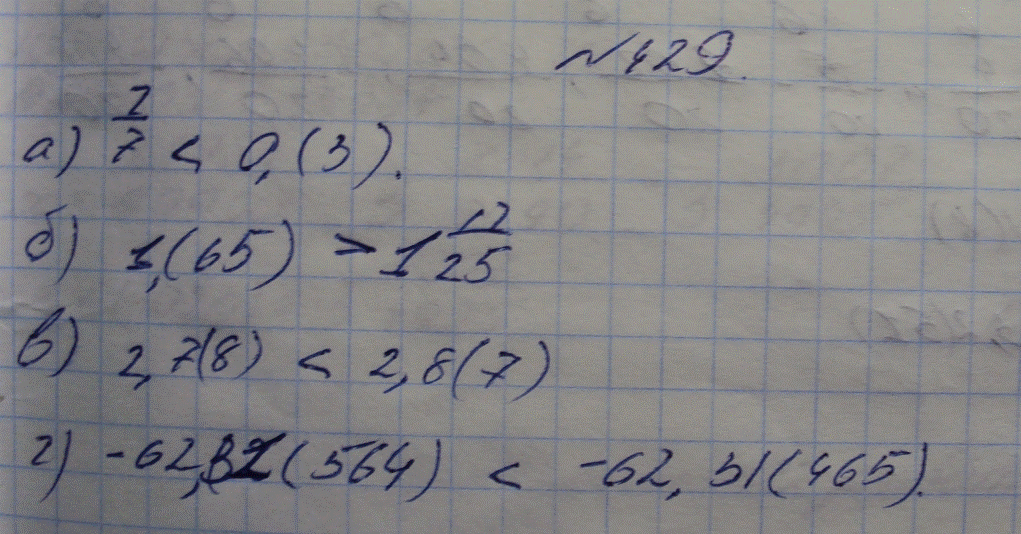 №429.
а) 2/7 < 0,(3).
б) 1,(65) > 1 12/25
в) 2,7(8) < 2,8(7)
г) -62,31(564) < -62,31(465).